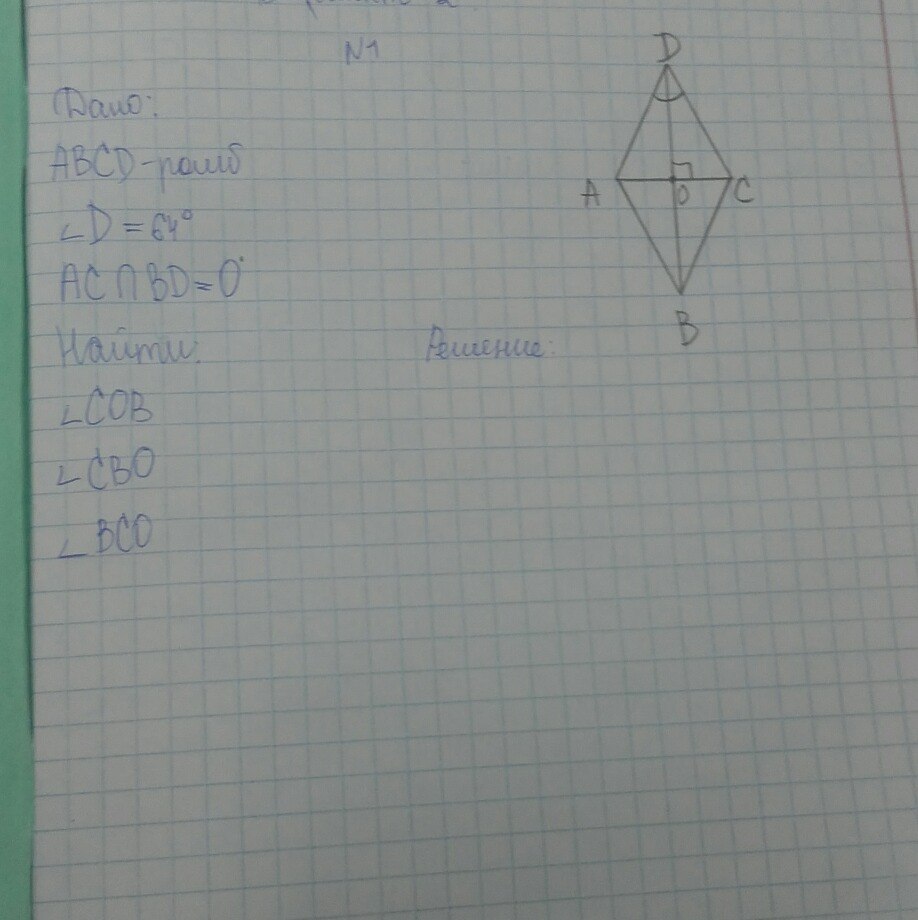 N1
Дано:
ABCD-ромб
∠D = 64°
AC∩BD=O
Найти:
∠COB
∠CBO
∠BCO
Решение:
D
A
O
C
B